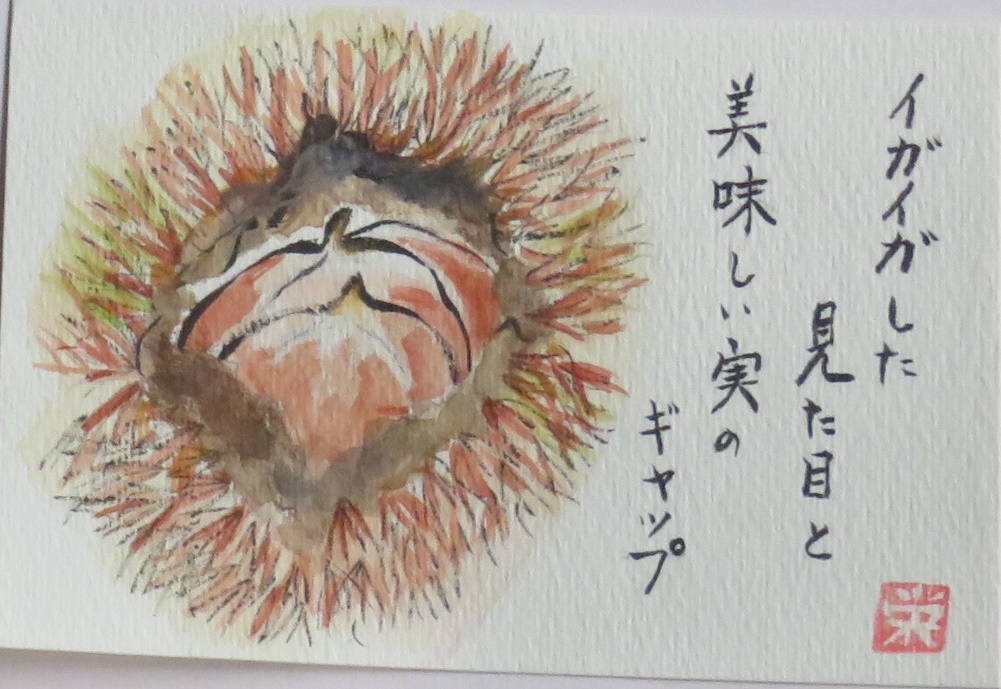 イガイガした
見た目と
美味しい実の
ギャップ